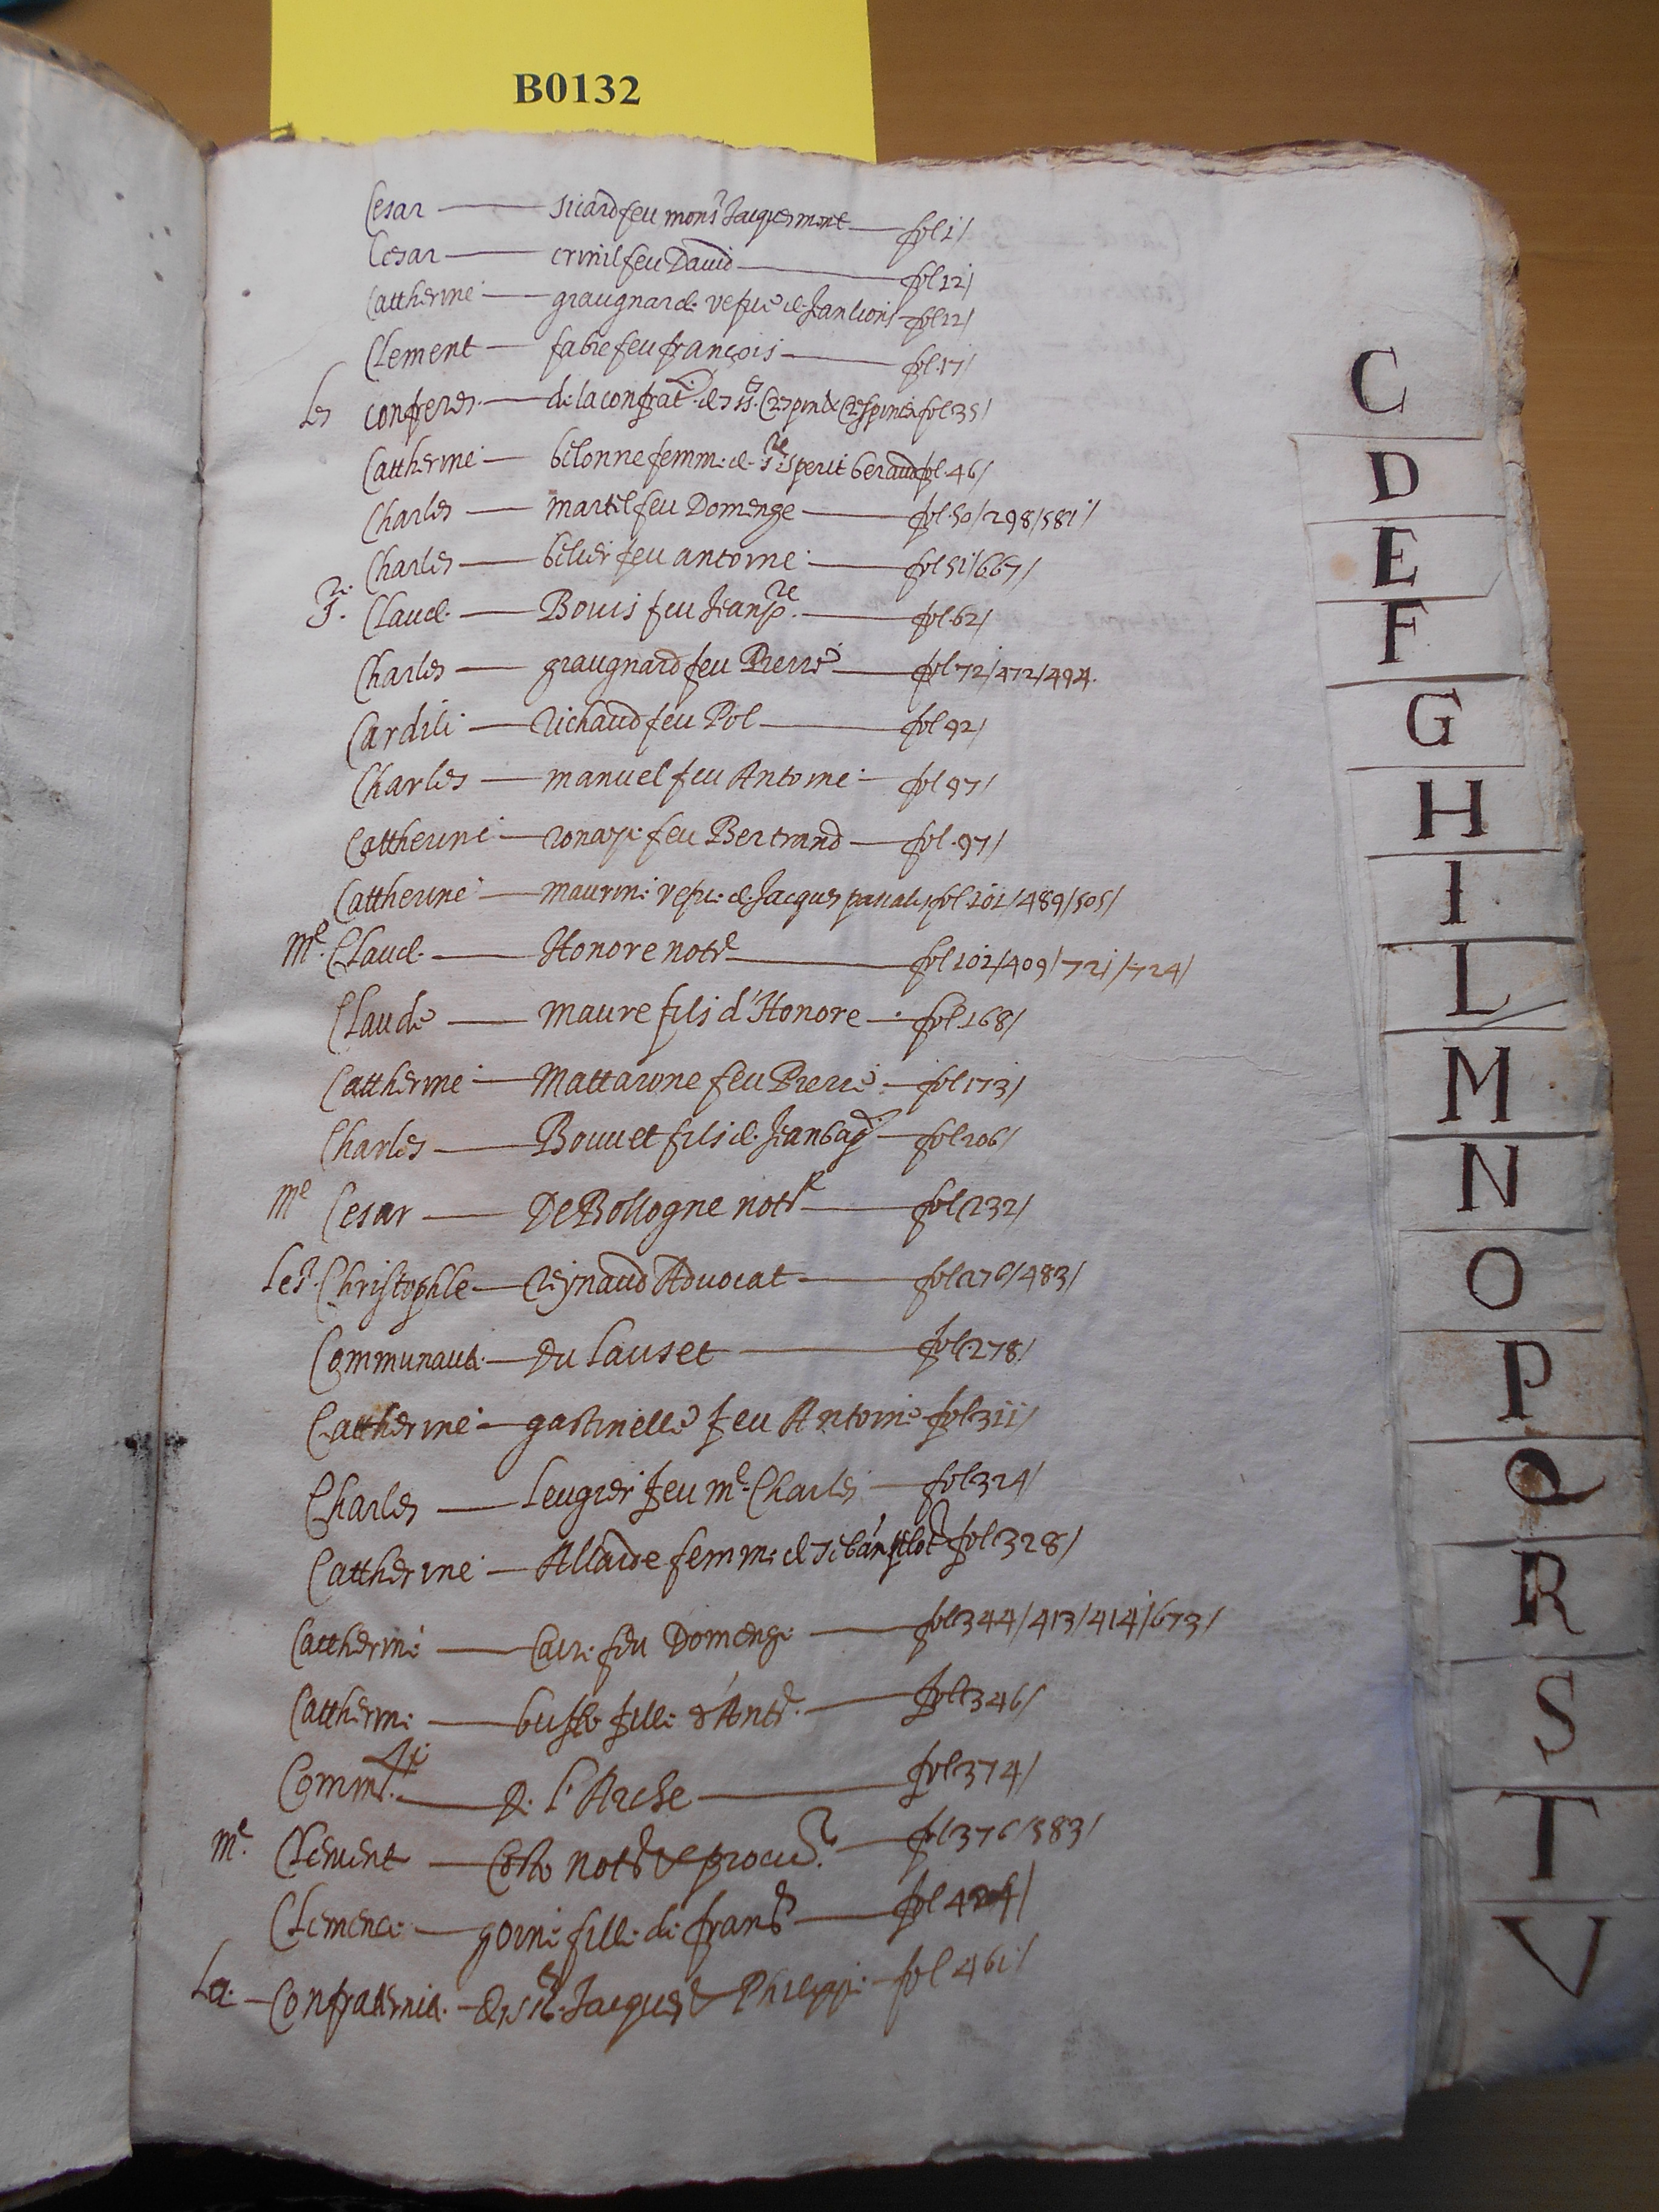 B0132
Cesar — sicard feu monsr Jacques mone — fol 1/
Cesar — crinil feu David — fol 12/
Cattherine — graugnarde vefue de Jan lions fol 12/
Clement — fabre feu françois — fol 17/
Les confreres — de la confrat. des ss. Crespin & Crespinien fol 35/
Cattherine — bilonne femme de sr. sperit beraud fol 46/
Charles — martel feu Domenge — fol 50/298/581/
Charles — bilier feu antoine — fol 51/667/
Sr. Claude — Bouis feu Jean pre. — fol 62/
Charles — graugnard feu Pierre — fol 72/472/494.
Cardili — Richaud feu Pol — fol 92/
Charles — manuel feu Antoine — fol 97/
Cattherine — ronaze feu Bertrand — fol 97/
Cattherine — maurine vefue de Jacques pascalis fol 101/489/505/
Me. Claude — Honore notre — fol 101/409/721/724/
Claude — maure fils d'Honore — fol 168/
Cattherine — Mattarone feu Pierre — fol 173/
Charles — Bouuet fils de Jean bap — fol 206/
Me Cesar — De Bollogne notre — fol 232/
Le sr. Christophle — Reynaud Aduocat — fol 276/483/
Communaute — Du Lauset — fol 278/
Cattherine — gastinelle feu Antoine fol 311/
Charles — Leugier feu Me. Charles — fol 324/
Cattherine — Allarde femme de fol 328/
Cattherine — Caire feu Domenge — fol 344/413/414/673/
Cattherine — fille d'Anthe. — fol 346/
Commte — De l'Arche — fol 374/
Me. Clement — Coste notre & procur. — fol 376/583/
Clemence — gorine fille de frans — fol
La Confraternite — des ss. Jacques & Philippe fol 461/
C
D
E
F
G
H
I
L
M
N
O
P
Q
R
S
T
V